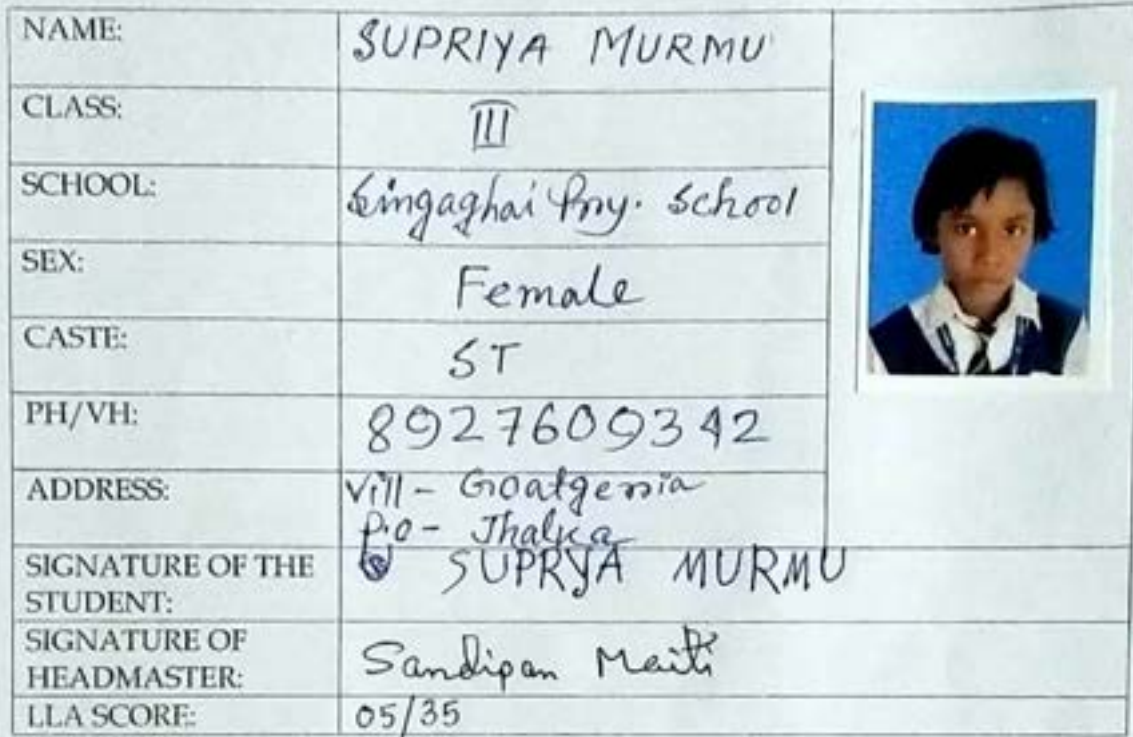 NAME: SUPRIYA MURMU
CLASS: III
SCHOOL: Singaghai Pry. School
SEX: Female
CASTE: ST
PH/VH: 8927609342
ADDRESS: Vill - Goatgeria
P.O - Jhalka
SIGNATURE OF THE STUDENT: SUPRYA MURMU
SIGNATURE OF HEADMASTER: Sandipan Maiti
LLA SCORE: 05/35